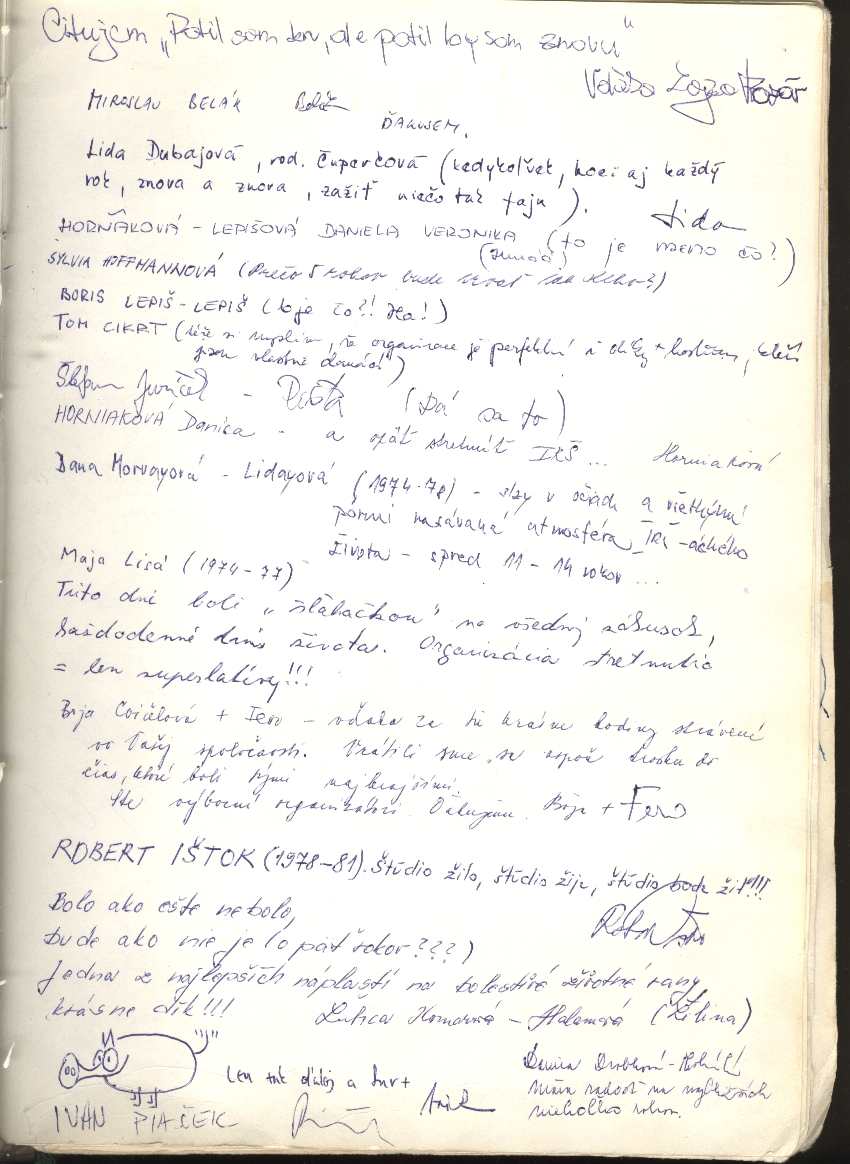 Citujem „Potil som krv, ale potil by som znovu"
Vďaka
MIROSLAV BELÁK
ĎAKUJEM.
Lida Dubajová, rod. Čuperková (kedykoľvek, hoci aj každý
rok, znova a znova, zažiť niečo tak fajn).
Lida
HORŇÁKOVÁ - LEPIŠOVÁ DANIELA VERONIKA (to je meno čo?)
SYLVIA HOFFMANNOVÁ (Prečo 5 rokov bude trvať tak dlho?)
BORIS LEPIŠ - LEPIŠ (to je čo?! Ha!)
TOM CIKRT (že organizace je perfektní i díky hostům, kteří
jsou vlastně domácí)
Štefan - (Dá sa to)
HORNIAKOVÁ Danica - a opäť stretnúť IKŠ... Horniaková
Dana Horvayová - Lidayová (1974-78) - slzy v očiach a všetkými
pórmi nasávaná atmosféra IKŠ-áckeho
života - spred 11 - 14 rokov ...
Maja Lisá (1974-77)
Tieto dni boli „šľahačkou" na všedný zákusok,
každodenné dni života. Organizácia stretnutia
= len superlatívy!!!
+ Fero - vďaka za tie krásne hodiny strávené
vo Vašej spoločnosti. Vrátili sme sa aspoň trosku do
čias, ktoré boli tými najkrajšími.
Ste výborní organizátori. Ďakujeme. + Fero
ROBERT IŠTOK (1978-81). Štúdio žilo, štúdio žije, štúdio bude žiť!!!
Bolo ako ešte nebolo,
bude ako nie je (o päť rokov???)
Jedna z najlepších náplastí na bolestivé životné rany,
krásne dík!!!
Ľubica - (Žilina)
Len tak ďalej a
IVAN PIAČEK
Danica
mám radosť na najbližších
niekoľko rokov.